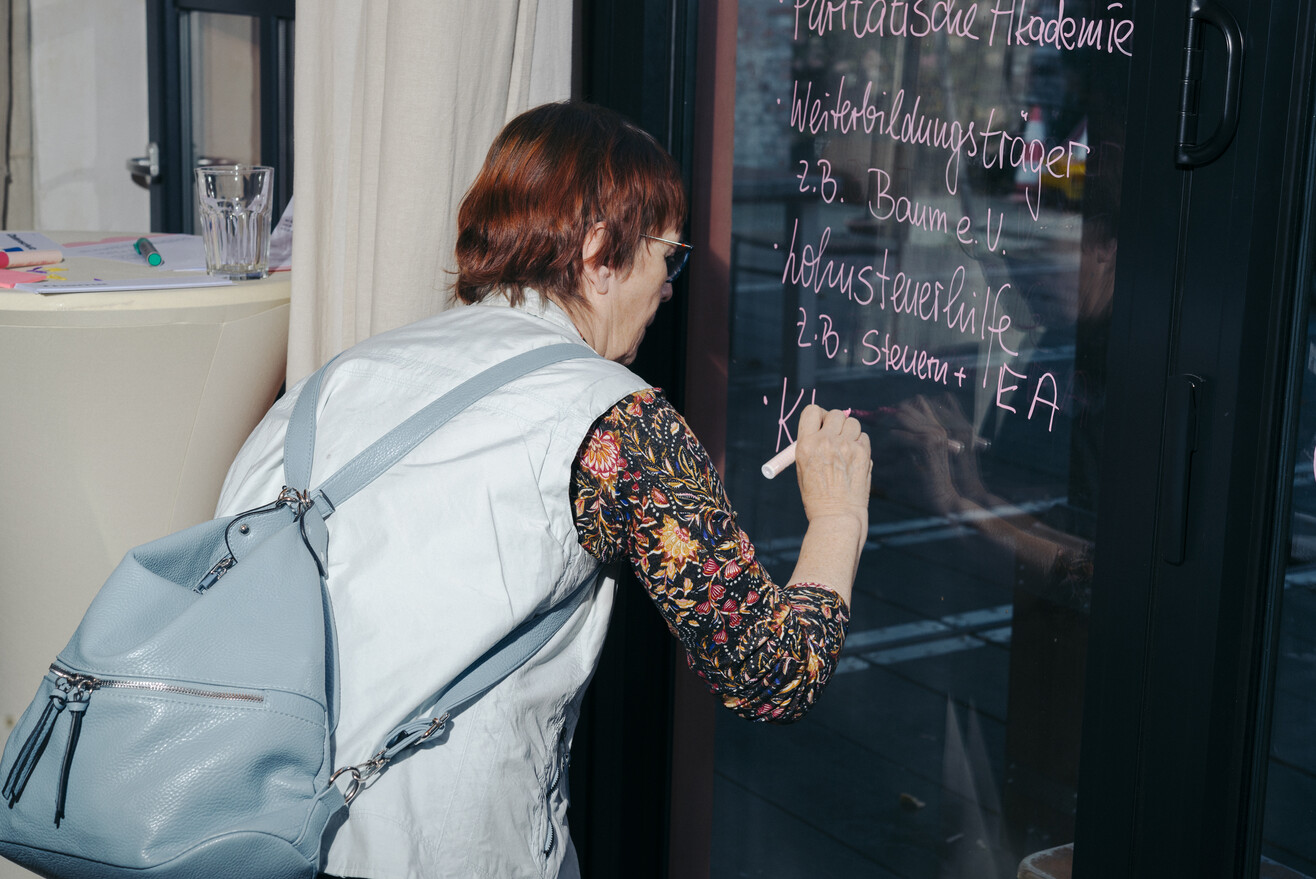 · Paritätische Akademie
· Weiterbildungsträger
z.B. Baum e.V.
· Lohnsteuerhilfe
z.B. Steuern + EA
· Kl